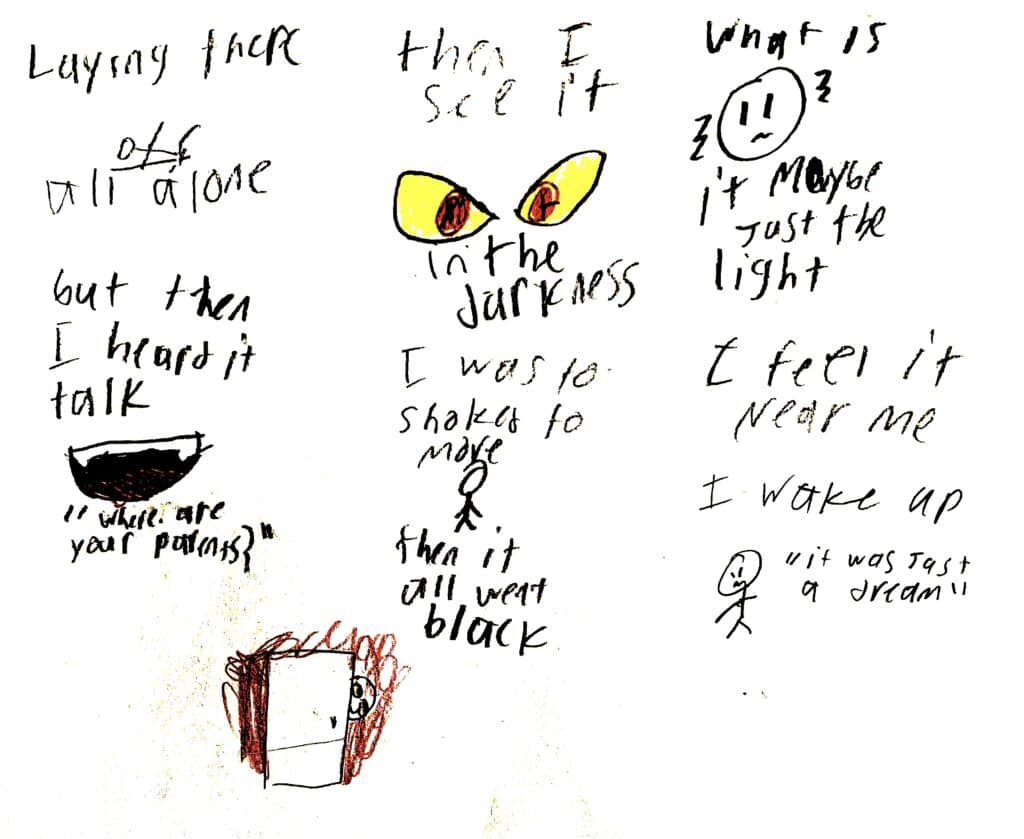 Laying there
off
all alone
but then
I heard it
talk
"where are
your parents?"
then I
see it
in the
darkness
I was to
shaked to
move
then it
all went
black
What is
it Maybe
Just the
light
I feel it
Near Me
I wake up
"it was Just
a dream"